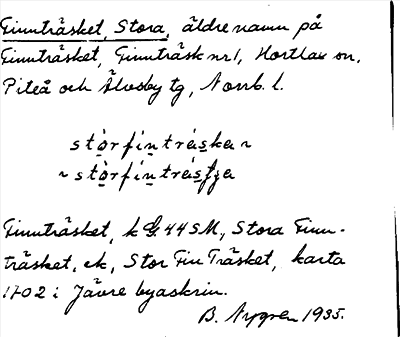 Finnträsket, Stora, äldre namn på
Finnträsket, Finnträsk nr1, Hortlax sn,
Piteå och Älvsby tg, Norrb. l.
stòrfinträskan
~ stòrfinträsfja
Finnträsket, k G.44SM, Stora Finn-
träsket, ek, Stor Fin Träsket, karta
1702 i Jävre byaskrin.
B. Nygren 1935.